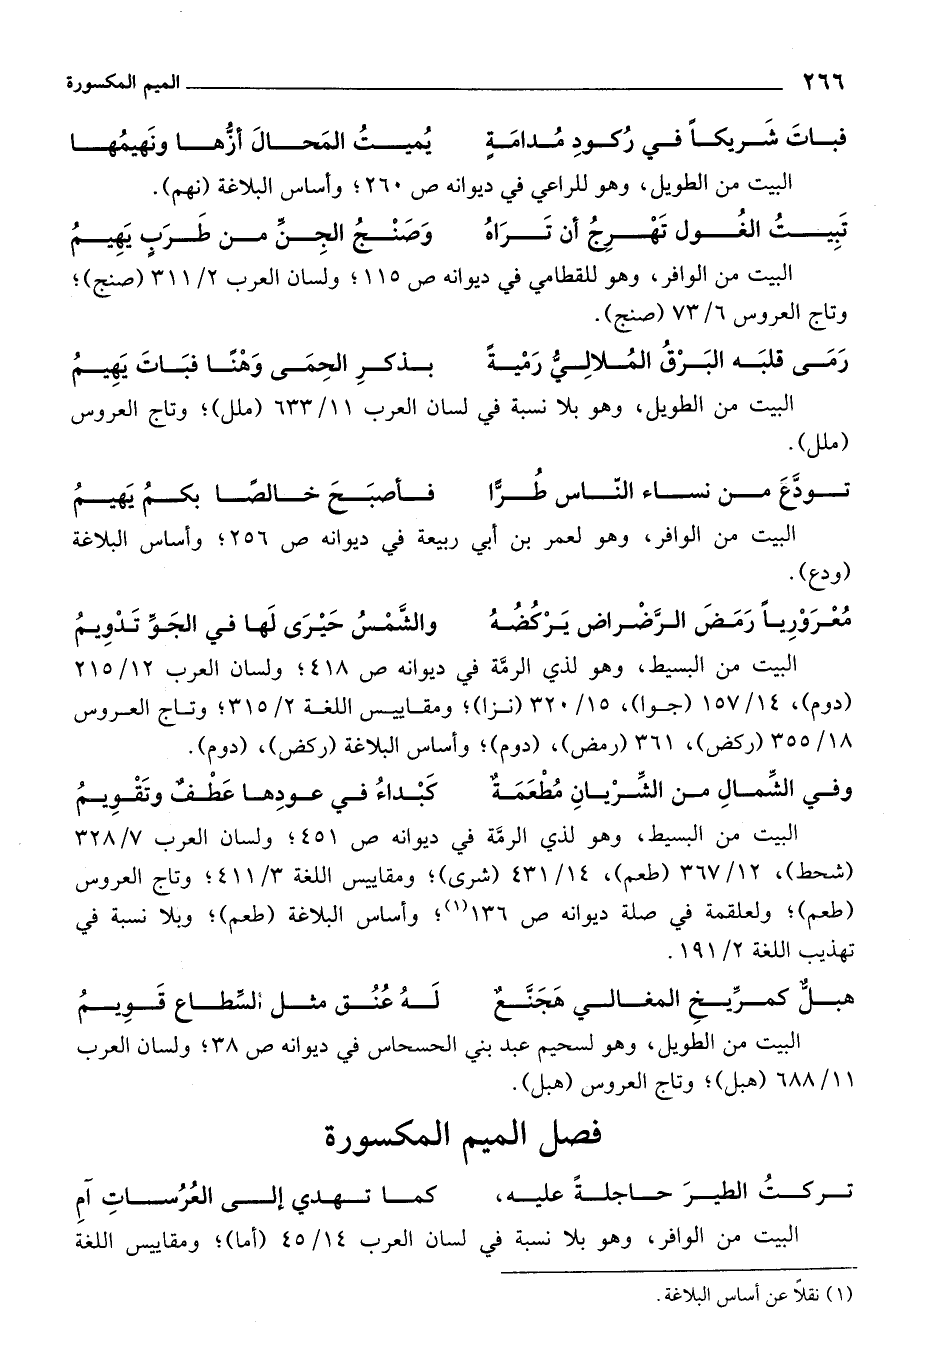 ٢٦٦ الميم المكسورة
فبـاتَ شَـريكـاً فـي رُكـودِ مُـدامَـةٍ يُميـتُ المَحـالَ أزُّهـا ونَهِيمُهـا
البيت من الطويل، وهو للراعي في ديوانه ص ٢٦٠؛ وأساس البلاغة (نهم).
تَبِيـتُ الغُـول تَهْـرِجُ أن تَـرَاهُ وَصَنْـجُ الجِـنِّ مـن طَـرَبٍ يَهِيـمُ
البيت من الوافر، وهو للقطامي في ديوانه ص ١١٥؛ ولسان العرب ٢/ ٣١١ (صنج)؛
وتاج العروس ٦/ ٧٣ (صنج).
رَمَـى قلبَـه البَـرْقُ المُـلالِـيُّ رَمْيـةً بـذكـرِ الحِمَـى وَهْنًـا فبَـاتَ يَهِيـمُ
البيت من الطويل، وهو بلا نسبة في لسان العرب ١١/ ٦٣٣ (ملل)؛ وتاج العروس
(ملل).
تـودَّعَ مـن نسـاء النّـاس طُـرًّا فـأصبَـحَ خـالصًـا بكـمُ يَهِيـمُ
البيت من الوافر، وهو لعمر بن أبي ربيعة في ديوانه ص ٢٥٦؛ وأساس البلاغة
(ودع).
مُعْـرَوْرِيـاً رَمَـضَ الـرَّضْـراضِ يَـرْكُضُـهُ والشَّمْـسُ حَيْـرَى لَهـا فـي الجَـوِّ تَـدْوِيـمُ
البيت من البسيط، وهو لذي الرمَّة في ديوانه ص ٤١٨؛ ولسان العرب ١٢/ ٢١٥
(دوم)، ١٤/ ١٥٧ (جـوا)، ١٥/ ٣٢٠ (نـزا)؛ ومقـاييـس اللغـة ٢/ ٣١٥؛ وتـاج العـروس
١٨/ ٣٥٥ (ركض)، ٣٦١ (رمض)، (دوم)؛ وأساس البلاغة (ركض)، (دوم).
وفـي الشِّمـالِ مـن الشِّـرْيـانِ مُطْعَمَـةٌ كَبْـداءُ فـي عـودهـا عَطْـفٌ وتَقْـويـمُ
البيت من البسيط، وهو لذي الرمَّة في ديوانه ص ٤٥١؛ ولسان العرب ٧/ ٣٢٨
(شحط)، ١٢/ ٣٦٧ (طعم)، ١٤/ ٤٣١ (شرى)؛ ومقاييس اللغة ٣/ ٤١١؛ وتاج العروس
(طعم)؛ ولعلقمة في صلة ديوانه ص ١٣٦(١)؛ وأساس البلاغة (طعم)؛ وبلا نسبة في
تهذيب اللغة ٢/ ١٩١.
هبـلٌّ كمـرِّيـخِ المغـالـي هَجَنَّـعٌ لَـهُ عُنُـق مثـل السِّطـاع قَـويـمُ
البيت من الطويل، وهو لسحيم عبد بني الحسحاس في ديوانه ص ٣٨؛ ولسان العرب
١١/ ٦٨٨ (هبل)؛ وتاج العروس (هبل).
فصل الميم المكسورة
تـركـتُ الطيـرَ حـاجلـةً عليـه، كمـا تـهـدي إلـى العُرُسـاتِ آمِ
البيت من الوافر، وهو بلا نسبة في لسان العرب ١٤/ ٤٥ (أما)؛ ومقاييس اللغة
(١) نقلاً عن أساس البلاغة.